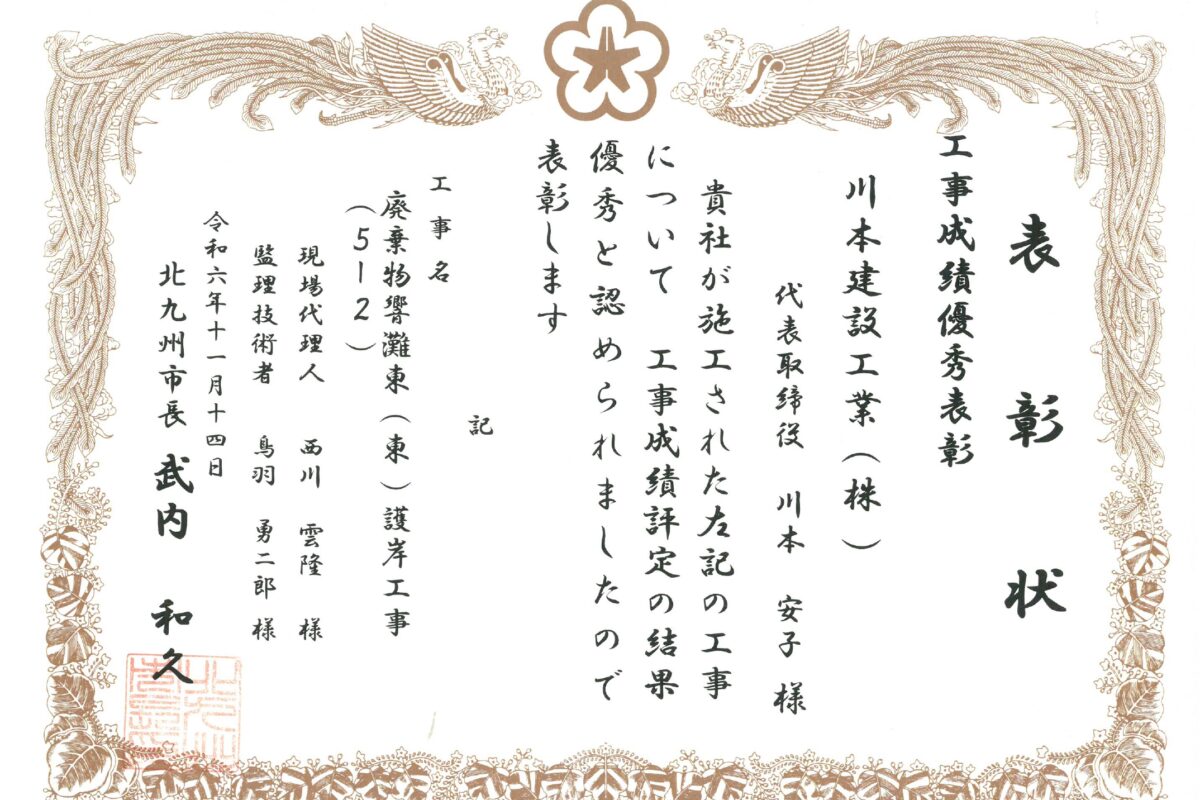 表彰状
工事成績優秀表彰
川本建設工業(株)
代表取締役 川本 安子 様
貴社が施工された左記の工事
について 工事成績評定の結果
優秀と認められましたので
表彰します
記
工事名
廃棄物響灘東(東)護岸工事
(5-2)
現場代理人 西川 雲隆 様
監理技術者 鳥羽 勇二郎 様
令和六年十一月十四日
北九州市長 武内 和久